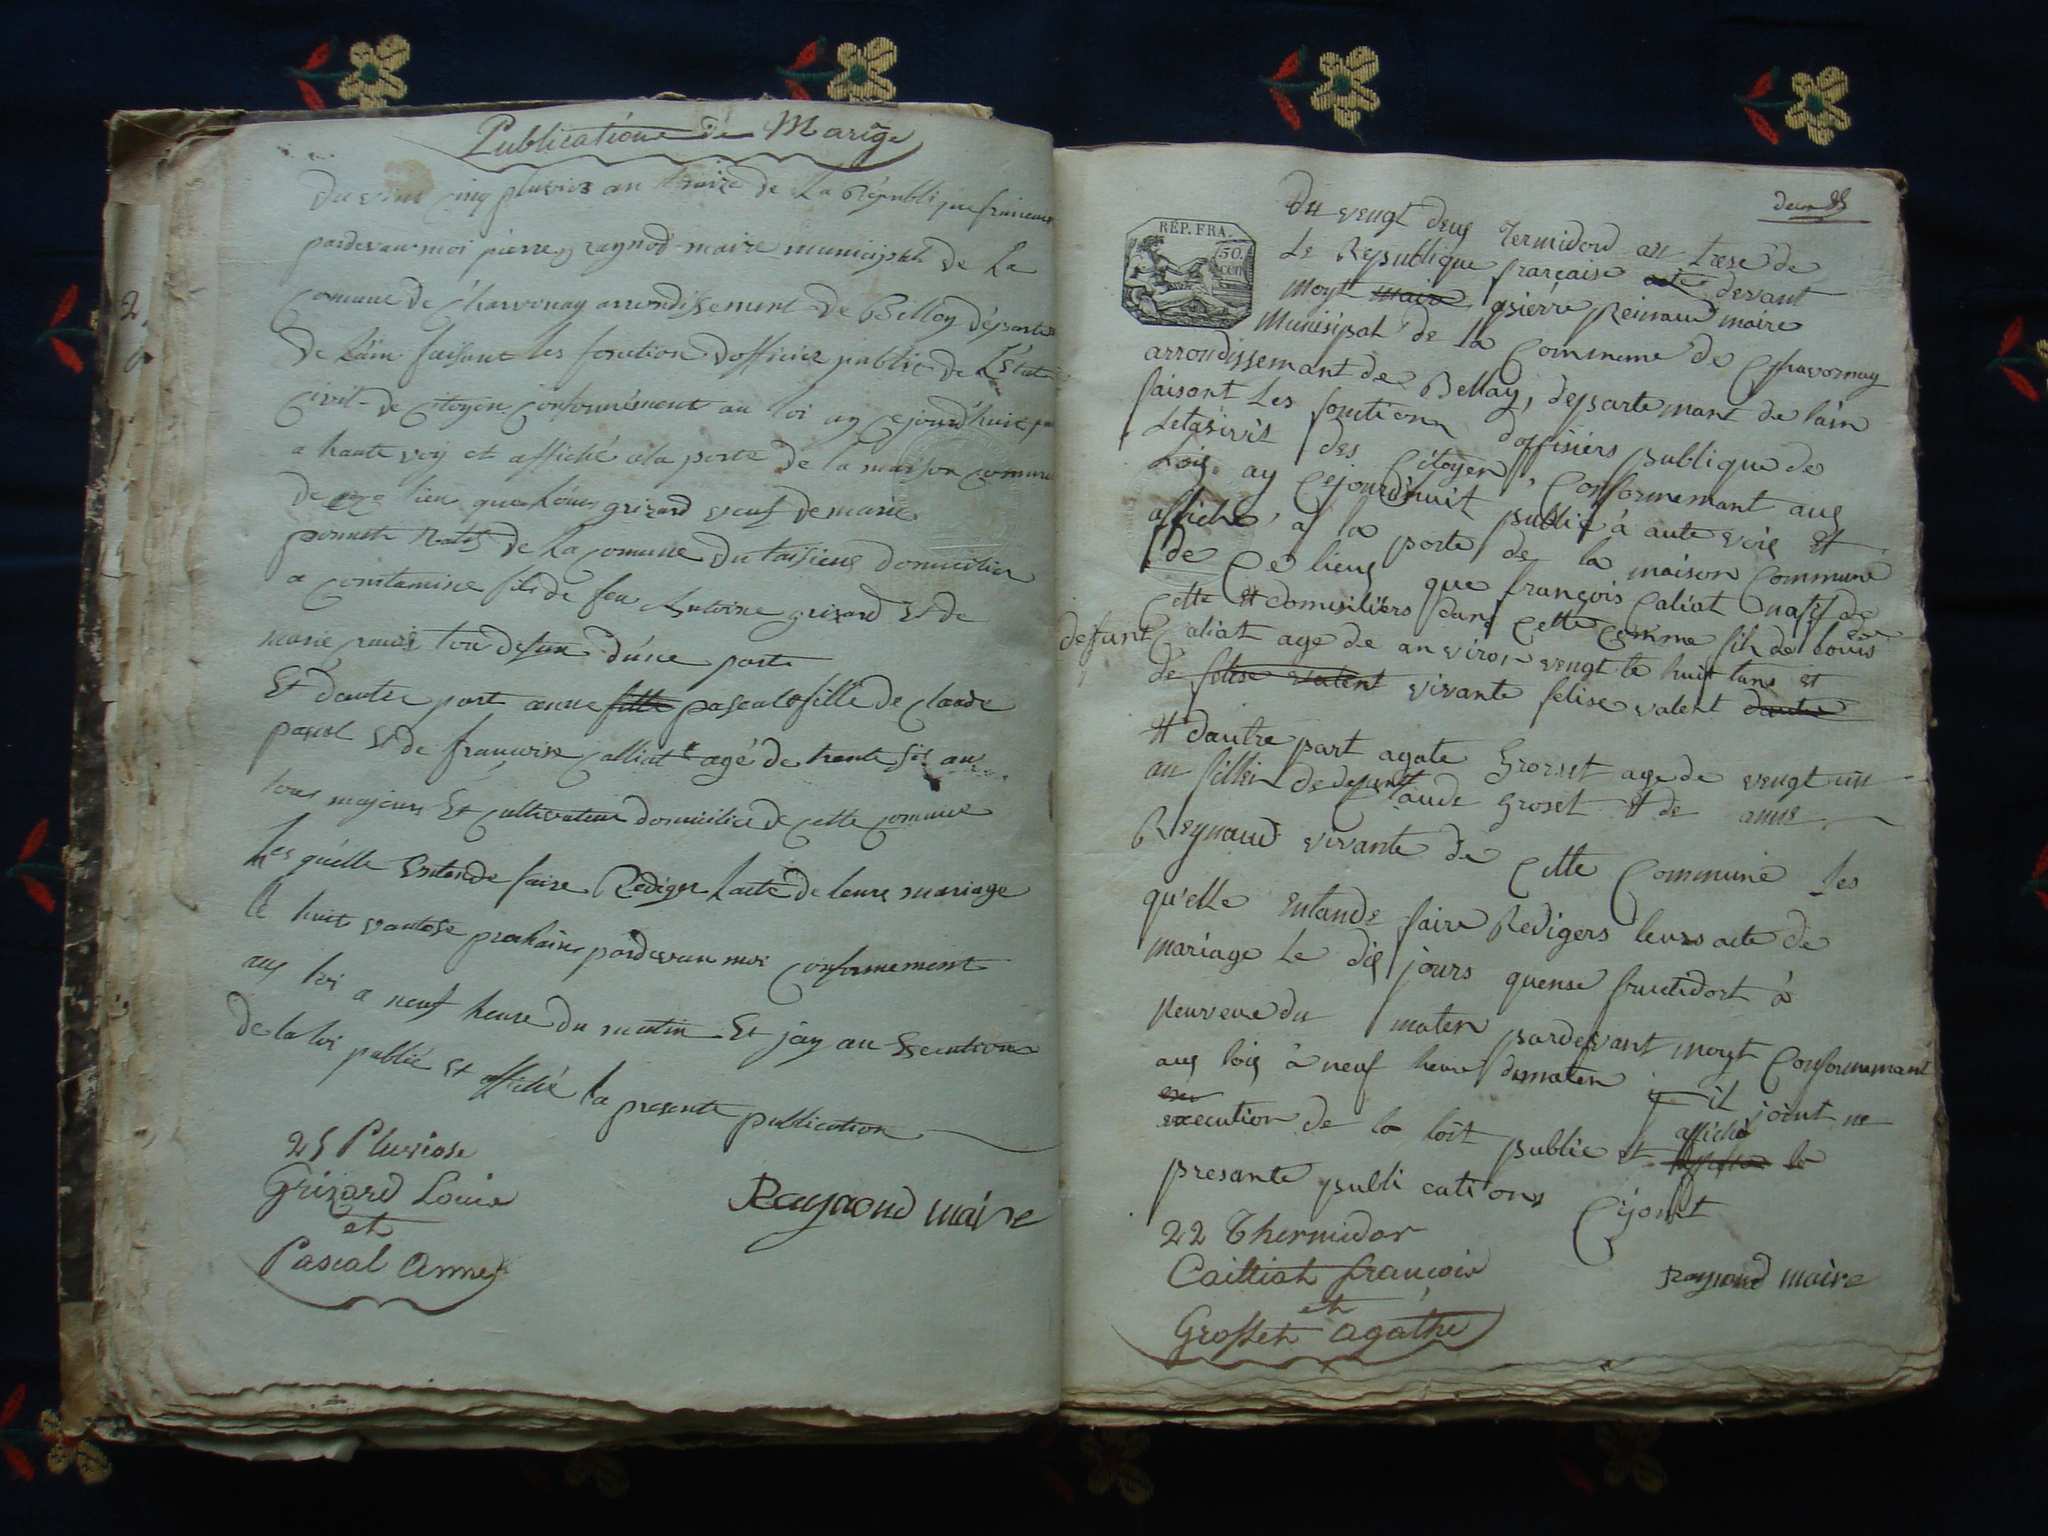 Publications de Mariage
Du vint cinq pluviose an traize de La République francaise
pardevan moi pierre raynod maire municipal de La
Comune de Charvonay arrondissement de Belloy départe
De Lain faisant les fonction dofficier public de L'état
Civil de Citoyin Conformément au loi ay cejourdhuit
a haute voy et affiché a la porte de la maison commune
De ce lieu que Louis grizard veuf de marie
natif de La comune du taisieux Domicilier
a constamine fils de feu Antoine grizard Et de
marie tou defun d'une parte
Et dautre part anne fille pascal fille de Claude
pascal Et de francoise Calliat agé de trante sis an
tous majeurs Et Cultivateur domicilié de Cette Comune
Les quelle Entende faire Rédiger Lacte de leurs mariage
le huit vantose prochain pardevan moi Conformement
aux loi a neuf heure du matin Et jay au Execution
de la loi publié Et affiché la presente publication
25 Pluviose
Grizard Louis
et
Pascal Anne
Raynaud maire
RÉP. FRA.
50. cen
Du vengt deux Termidord an trese de
La Republique française devant
moyt maire pierre Reinaud maire
Munisipal de la Commune de Chavornay
arrondissemant de Bellay, departemant de lain
faisont Les fontion doffisiers publique de
Letasivit des Citoyen, Conformemant aux
Lois ay Cejourd'huit publié à aute vois et
affiché a la porte de la maison Commune
de Ce lieux que françois Caliat natif de
Cette et domisiliers dans Cette Comme fils de louis
defunt Caliat age de anviron vengt te huit tans et
de felise valent vivante felise valent dautre
et dautre part agate Groset age de vengt un
an fillei de defunt Claude Groset et de anne
Reynaud vivante de Cette Commune les
qu'elle entande faire Redigers leurs acte de
mariage Le dix jours quense fructidort à
neuveure du maten pardevant moyt Conformemant
aux lois à neuf heure dumaten il joint ne
exe
execution de la loit public et affiché la
presante publi cations Cijoint
22 Thermidor
Cailliat françois
et
Grosset Agathe
Raynaud maire